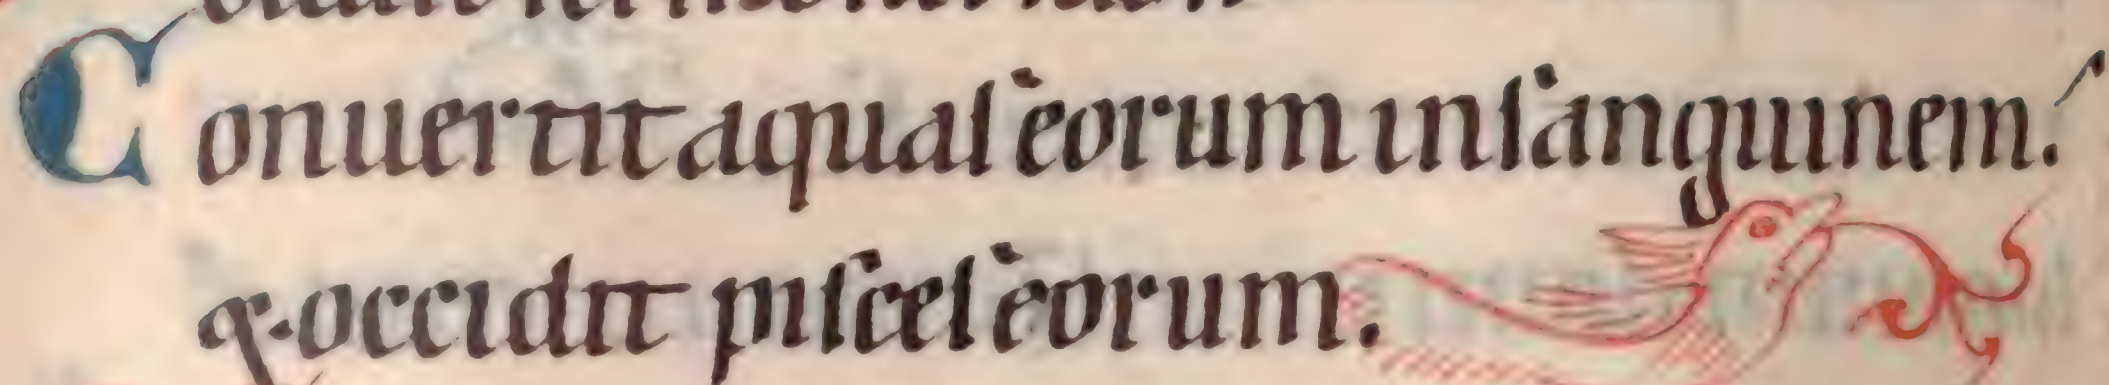 Conuertit aquaſ eorum in ſanguinem.
&·occidit piſceſ eorum.